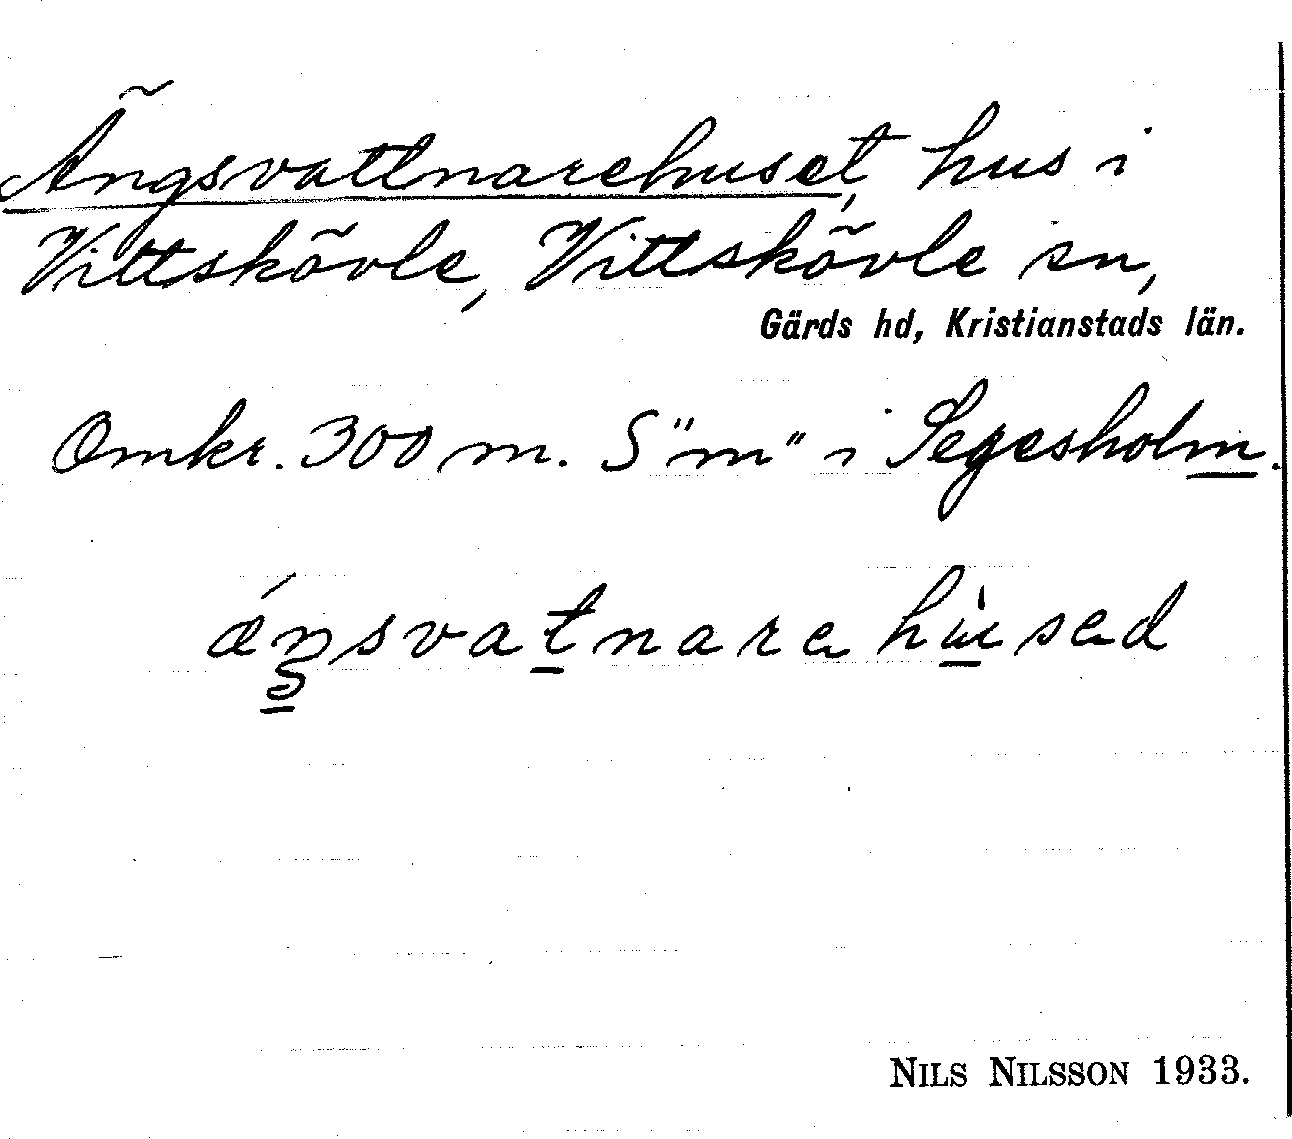 Ängsvattnarehuset, hus i
Vittskövle, Vittskövle sn,
Gärds hd, Kristianstads län.
Omkr. 300 m. S "m" i Segesholm.
ǽŋsvatnarə hùsəd
NILS NILSSON 1933.